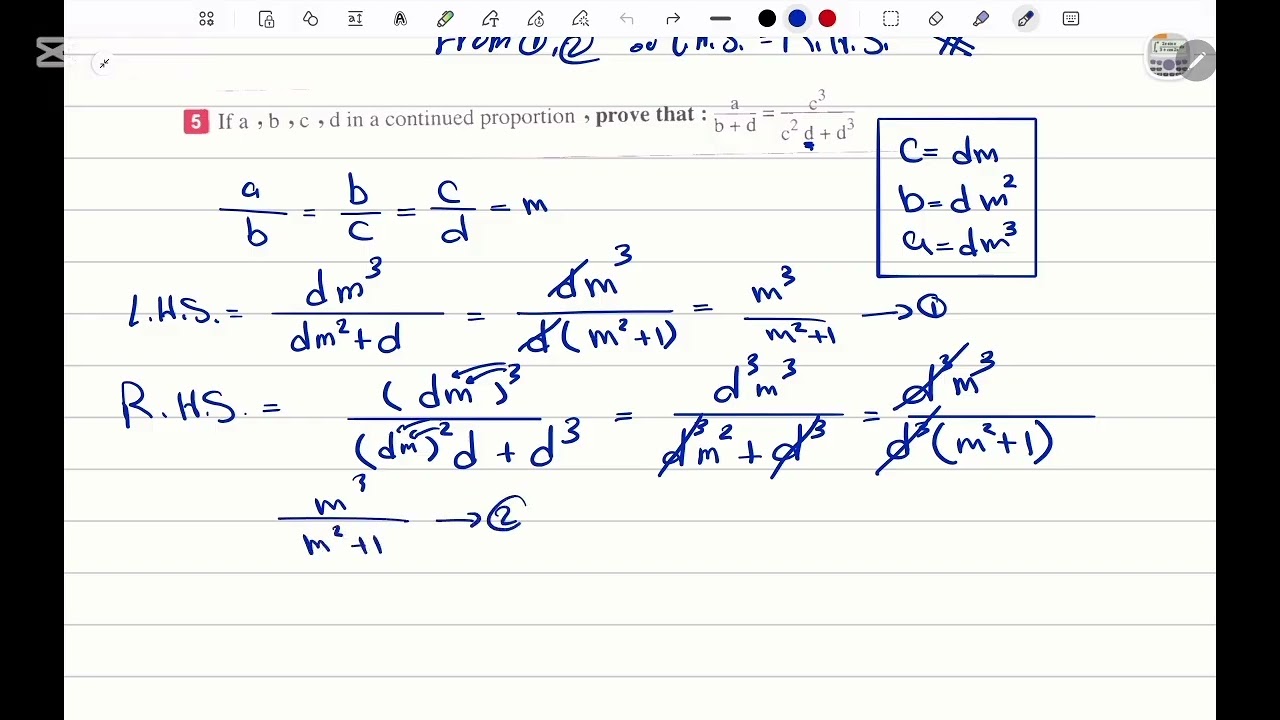 From ①,② ∴ L.H.S. = R.H.S. #
5 If a , b , c , d in a continued proportion , prove that : a/(b + d) = c³/(c² d + d³)
c = dm
b = dm²
a = dm³
a/b = b/c = c/d = m
L.H.S. = dm³/(dm²+d) = dm³/(d(m²+1)) = m³/(m²+1) → ①
R.H.S. = (dm)³/((dm)²d + d³) = d³m³/(d³m² + d³) = d³m³/(d³(m²+1))
m³/(m²+1) → ②